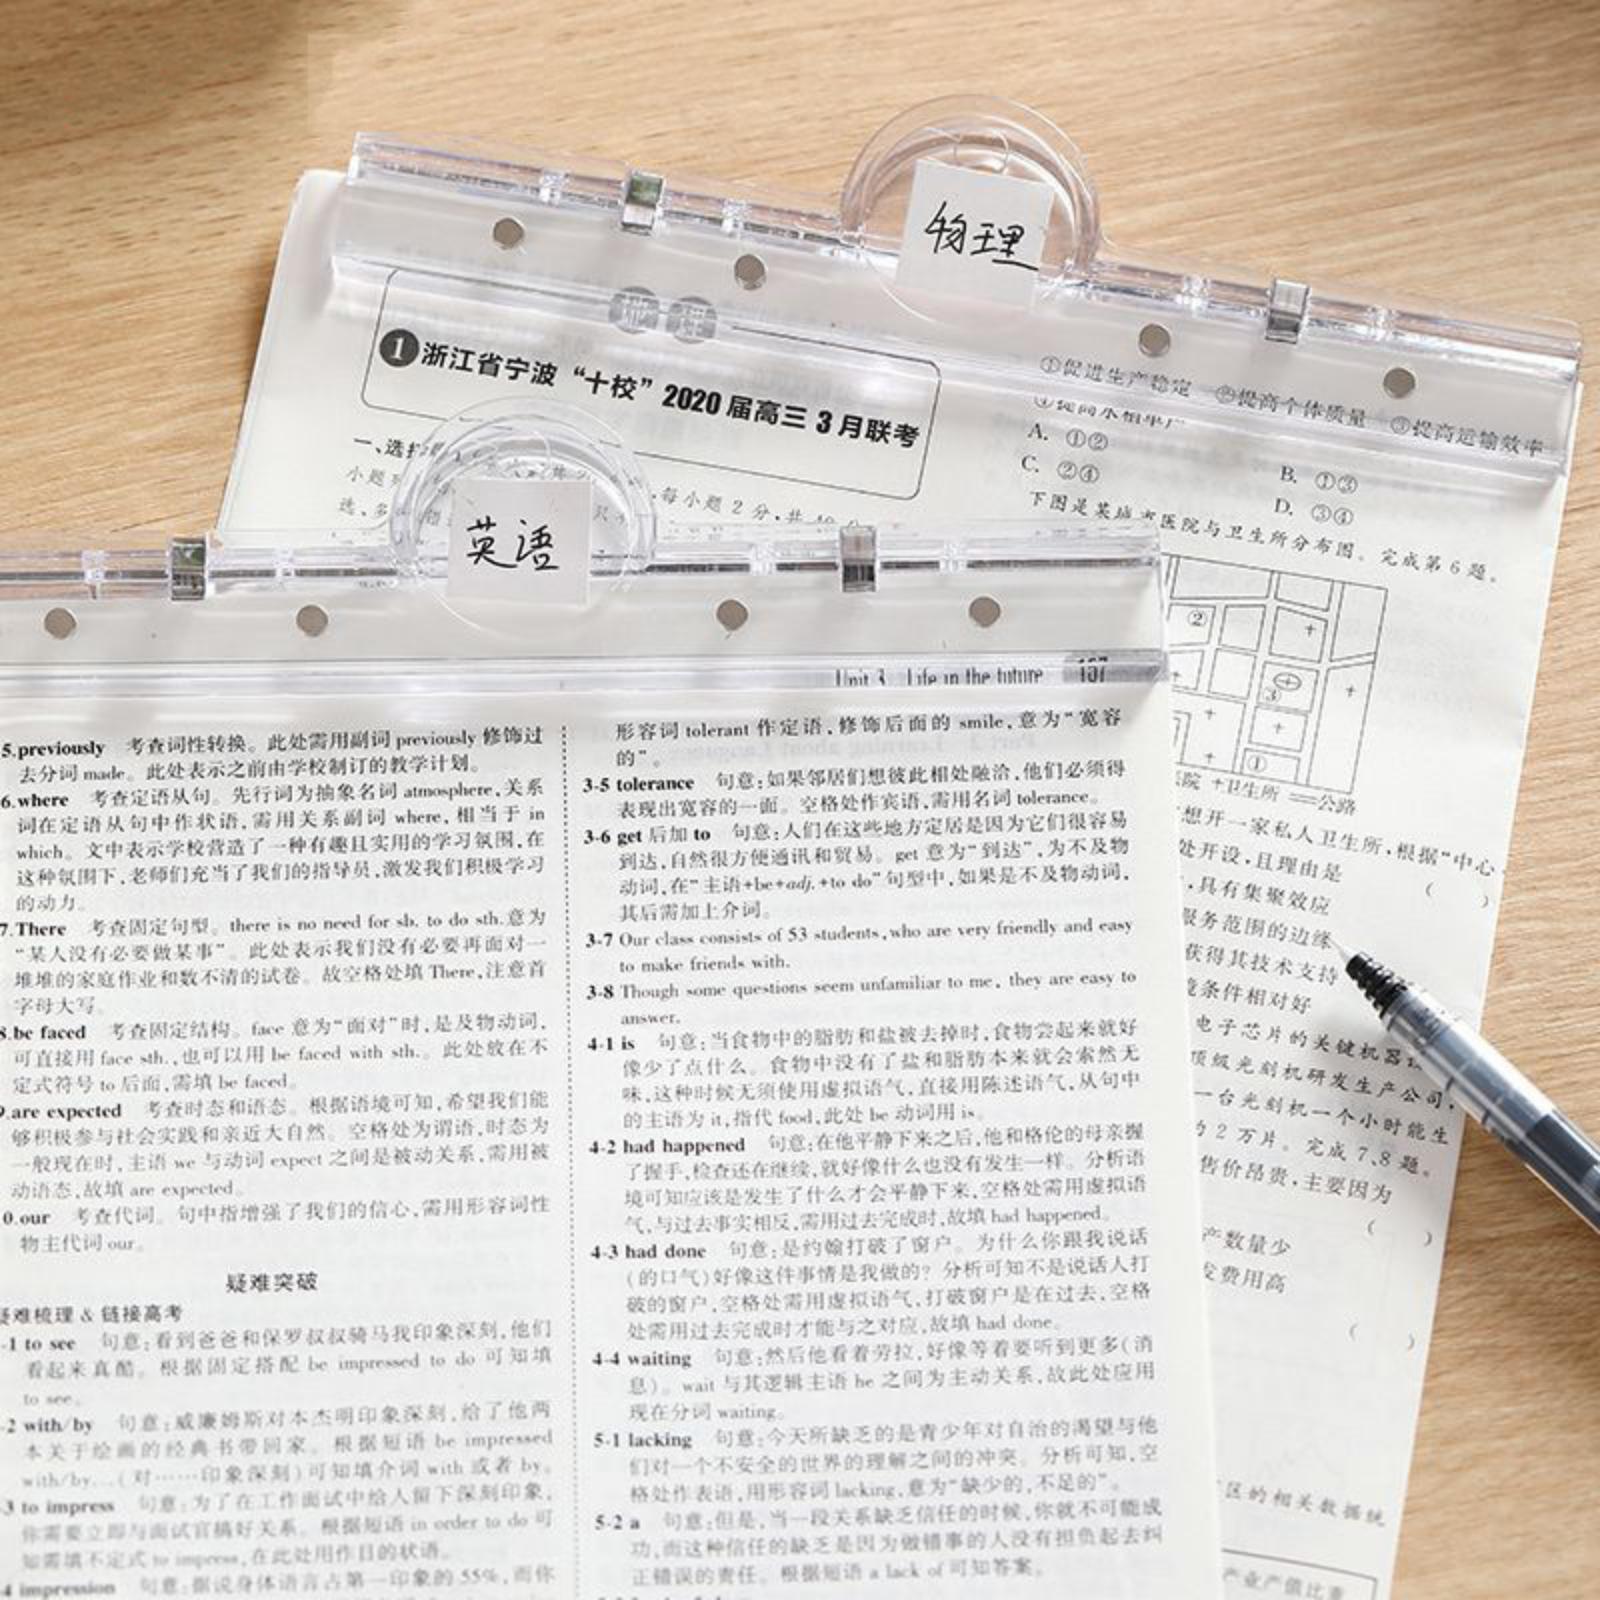 物理
❶浙江省宁波“十校”2020届高三3月联考
一、选择
小题
,每小题2分,共
①促进生产稳定 ②提高个体质量 ③提高运输效率
A. ①②
B. ①③
C. ②④
D. ③④
下图是某城市医院与卫生所分布图。完成第6题。
②
③
①
院 +卫生所 ═公路
想开一家私人卫生所,根据“中心
处开设,且理由是
( )
,具有集聚效应
服务范围的边缘
获得其技术支持
条件相对好
电子芯片的关键机器
顶级光刻机研发生产公司,
一台光刻机一个小时能生
2万片。完成7、8题。
售价昂贵,主要因为
( )
产数量少
发费用高
( )
区的相关数据统
产业产值比重
英语
Unit 3 Life in the future 167
5.previously 考查词性转换。此处需用副词 previously 修饰过
去分词 made。此处表示之前由学校制订的教学计划。
6.where 考查定语从句。先行词为抽象名词 atmosphere,关系
词在定语从句中作状语,需用关系副词 where,相当于 in
which。文中表示学校营造了一种有趣且实用的学习氛围,在
这种氛围下,老师们充当了我们的指导员,激发我们积极学习
的动力。
7.There 考查固定句型。there is no need for sb. to do sth.意为
“某人没有必要做某事”。此处表示我们没有必要再面对一
堆堆的家庭作业和数不清的试卷。故空格处填 There,注意首
字母大写。
8.be faced 考查固定结构。face 意为“面对”时,是及物动词,
可直接用 face sth.,也可以用 be faced with sth.。此处放在不
定式符号 to 后面,需填 be faced。
9.are expected 考查时态和语态。根据语境可知,希望我们能
够积极参与社会实践和亲近大自然。空格处为谓语,时态为
一般现在时,主语 we 与动词 expect 之间是被动关系,需用被
动语态,故填 are expected。
0.our 考查代词。句中指增强了我们的信心,需用形容词性
物主代词 our。
疑难突破
疑难梳理 & 链接高考
-1 to see 句意:看到爸爸和保罗叔叔骑马我印象深刻,他们
看起来真酷。根据固定搭配 be impressed to do 可知填
to see。
-2 with/by 句意:威廉姆斯对本杰明印象深刻,给了他两
本关于绘画的经典书带回家。根据短语 be impressed
with/by...(对……印象深刻)可知填介词 with 或者 by。
-3 to impress 句意:为了在工作面试中给人留下深刻印象,
你需要立即与面试官搞好关系。根据短语 in order to do 可
知需填不定式 to impress,在此处用作目的状语。
-4 impression 句意:据说身体语言占第一印象的55%,而你
形容词 tolerant 作定语,修饰后面的 smile,意为“宽容
的”。
3-5 tolerance 句意:如果邻居们想彼此相处融洽,他们必须得
表现出宽容的一面。空格处作宾语,需用名词 tolerance。
3-6 get 后加 to 句意:人们在这些地方定居是因为它们很容易
到达,自然很方便通讯和贸易。get 意为“到达”,为不及物
动词,在“主语+be+adj.+to do”句型中,如果是不及物动词,
其后需加上介词。
3-7 Our class consists of 53 students,who are very friendly and easy
to make friends with.
3-8 Though some questions seem unfamiliar to me, they are easy to
answer.
4-1 is 句意:当食物中的脂肪和盐被去掉时,食物尝起来就好
像少了点什么。食物中没有了盐和脂肪本来就会索然无
味,这种时候无须使用虚拟语气,直接用陈述语气,从句中
的主语为 it,指代 food,此处 be 动词用 is。
4-2 had happened 句意:在他平静下来之后,他和格伦的母亲握
了握手,检查还在继续,就好像什么也没有发生一样。分析语
境可知应该是发生了什么才会平静下来,空格处需用虚拟语
气,与过去事实相反,需用过去完成时,故填 had happened。
4-3 had done 句意:是约翰打破了窗户。为什么你跟我说话
(的口气)好像这件事情是我做的?分析可知不是说话人打
破的窗户,空格处需用虚拟语气,打破窗户是在过去,空格
处需用过去完成时才能与之对应,故填 had done。
4-4 waiting 句意:然后他看着劳拉,好像等着要听到更多(消
息)。wait 与其逻辑主语 he 之间为主动关系,故此处应用
现在分词 waiting。
5-1 lacking 句意:今天所缺乏的是青少年对自治的渴望与他
们对一个不安全的世界的理解之间的冲突。分析可知,空
格处作表语,用形容词 lacking,意为“缺少的,不足的”。
5-2 a 句意:但是,当一段关系缺乏信任的时候,你就不可能成
功,而这种信任的缺乏是因为做错事的人没有担负起去纠
正错误的责任。根据短语 a lack of 可知答案。